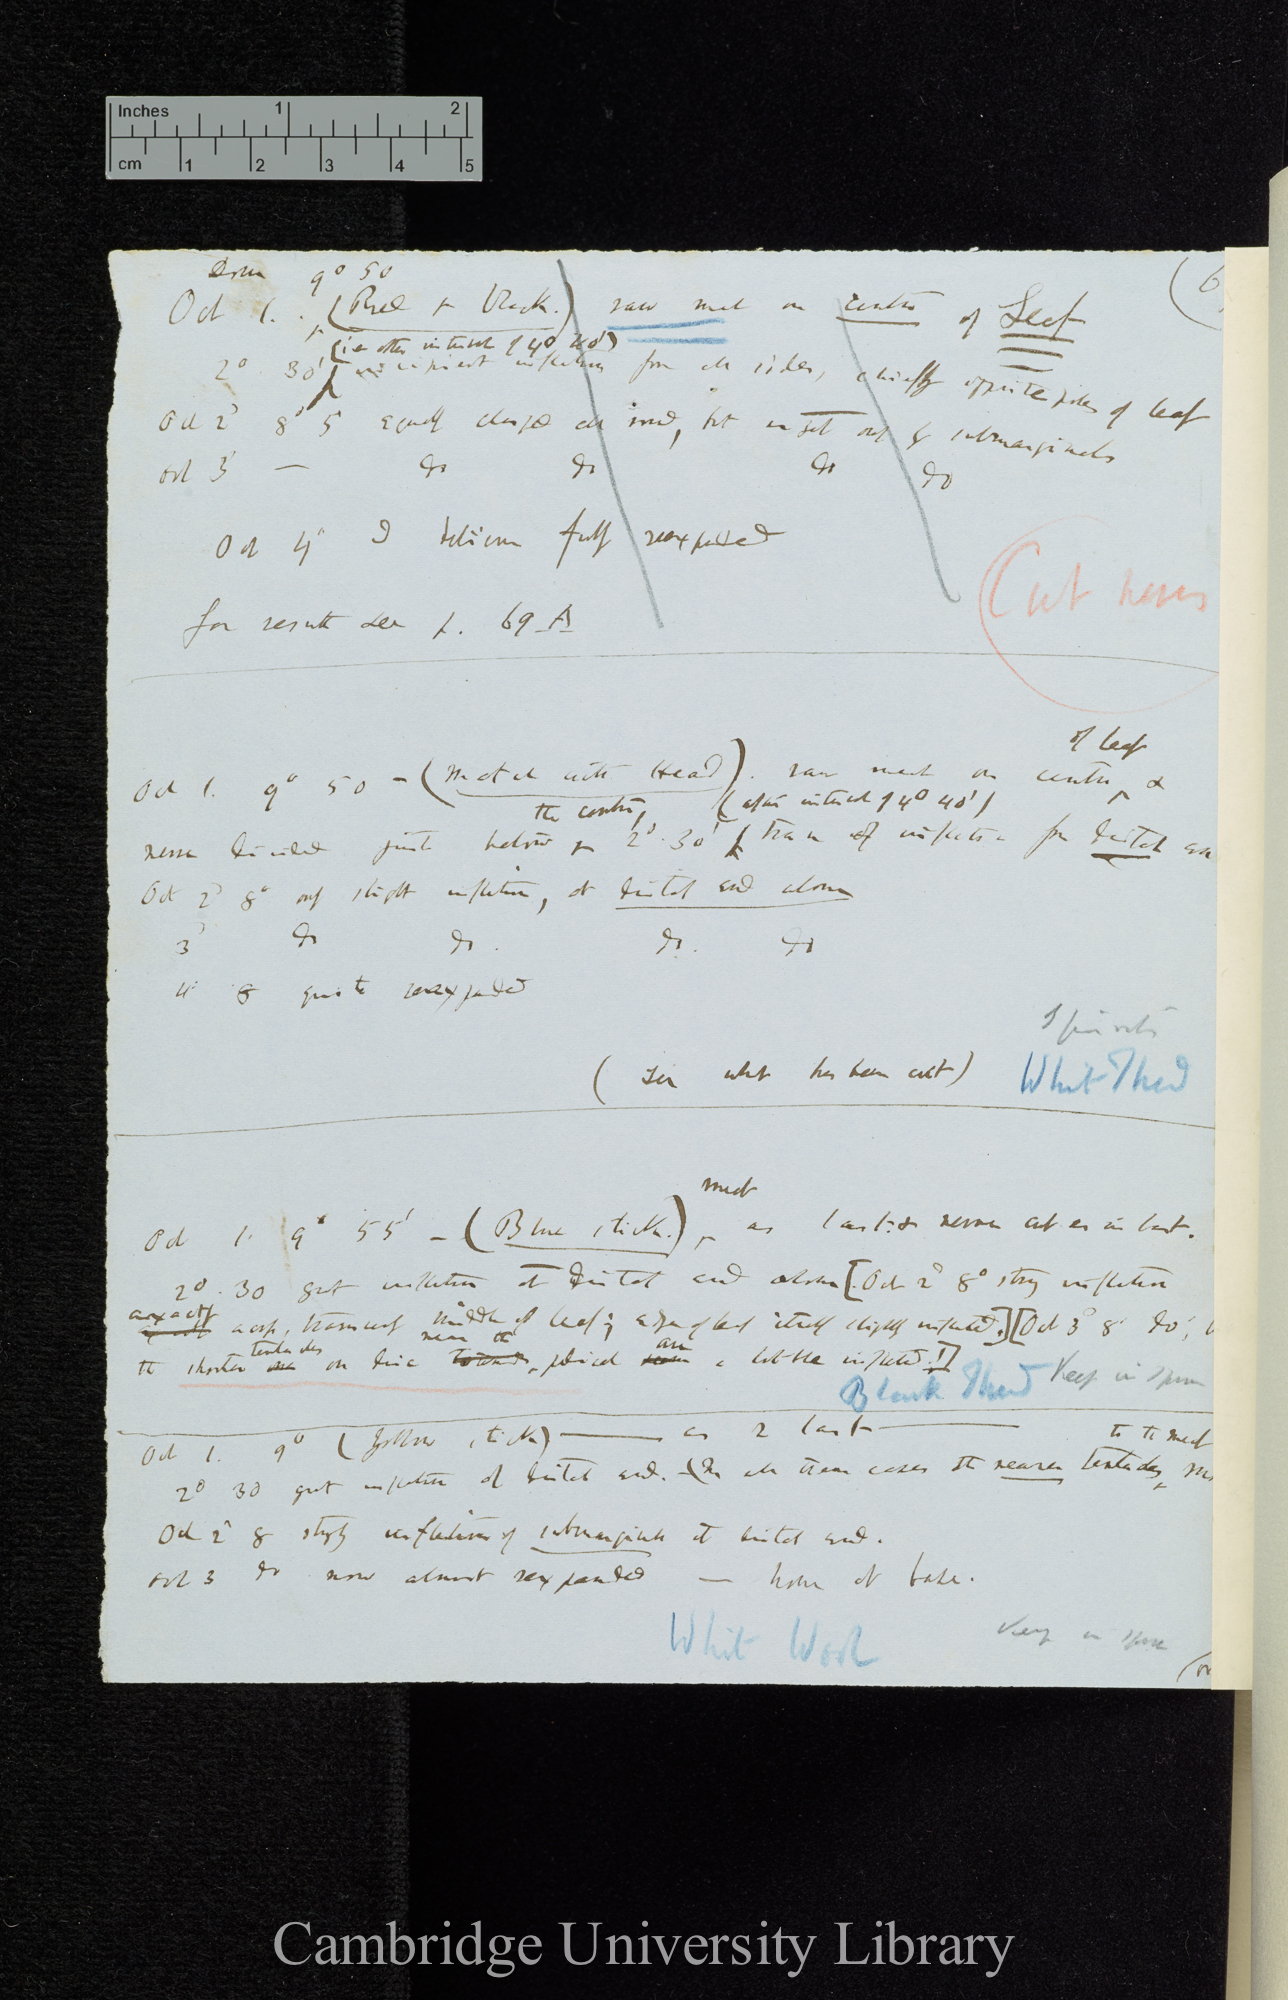 Inches 1 2
cm 1 2 3 4 5
9° 50
Oct 1. (Red & black.) raw meat on centre of Leaf
(ie after interval of 4° 40')
2° 30' incipient inflection from all sides, chiefly opposite poles of leaf
Oct 2° 8° 5 equally clasped all round, but as yet only by submarginals
Oct 3° — do do do do
Oct 4° I believe fully reexpanded
Cut nerves
for result see p. 69 A
of leaf
Oct 1. 9° 50 — (Match with Head). raw meat on centre, &
the centre, (after interval of 4° 40')
nerve divided just below 2° 30' trace of inflection for distal
Oct 2° 8° only slight inflection, at distal end alone
3° do do. do. do
4° 8 quite reexpanded
Spirits
(See what has been cut) White Thread
meat
Oct 1. 9° 55' — (Blue stick.), as last: & nerve cut as in last.
2° 30 great inflection at distal end alone [Oct 2° 8° strong inflection
exactly across, transversely middle of leaf; edge of leaf itself slightly inflected.] [Oct 3° 8° do;
tentacles near the are
the shorter on disc towards, a little inflected!]
Black Thread Keep in Spirits
Oct 1. 9° (Yellow stick) — as 2 last — to the meat
2° 30 great inflection of distal end. — (In all these cases the nearer tentacles,
Oct 2° 8 strongly inflection of submarginals at distal end.
Oct 3 do now almost reexpanded — none at base.
White Wool Keep in Spirits
Cambridge University Library